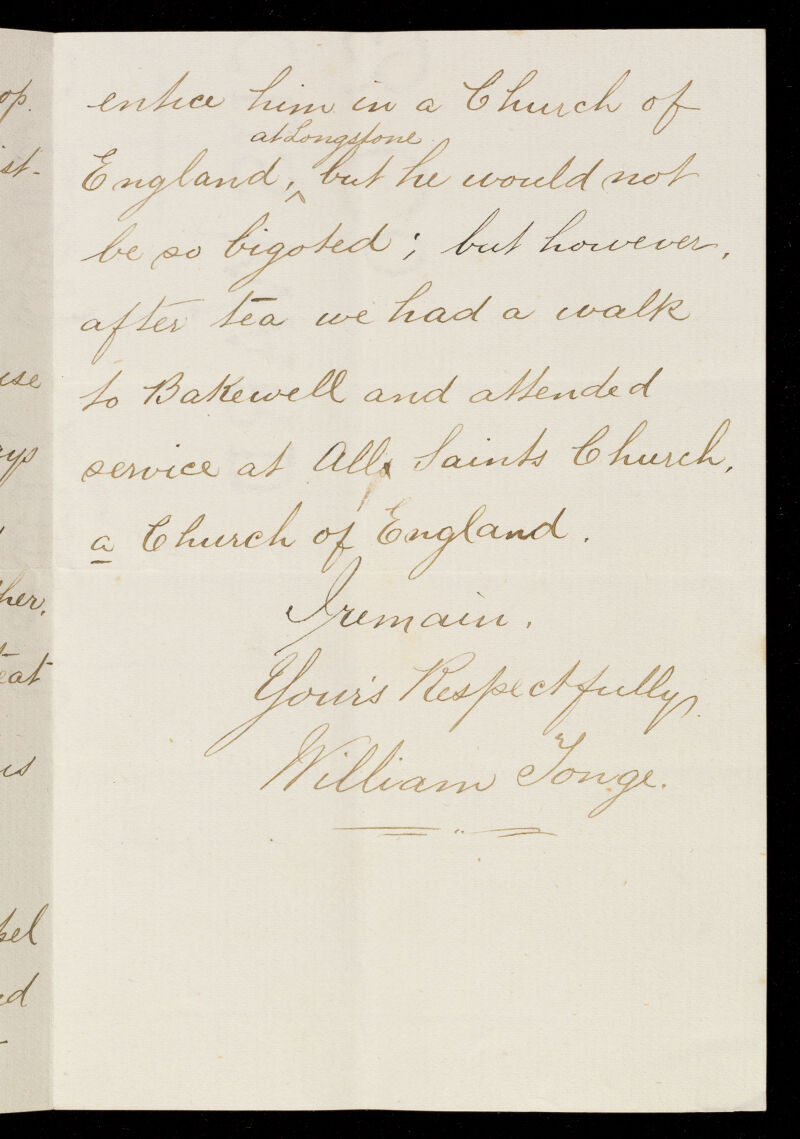 op.
ist-
use
ays
ther,
eat
us
pel
nd
entice him in a Church of
at Longstone
England, ^ but he would not
be so bigoted; but however,
after tea we had a walk
to Bakewell and attended
service at All Saints Church,
a Church of England.
I remain.
Your's Respectfully
William Tonge.